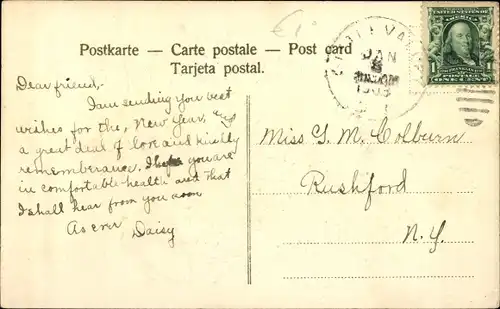 Postkarte — Carte postale — Post card
Tarjeta postal.
JAN
UNITED STATES OF AMERICA
POSTAGE ONE CENT
Dear friend,-
I am sending you best
wishes for the New Year, and
a great deal of love and kindly
rememberance. I hope you are
in comfortable health and that
I shall hear from you soon
As ever
Daisy
Miss G. M. Colburn
Rushford
N. Y.